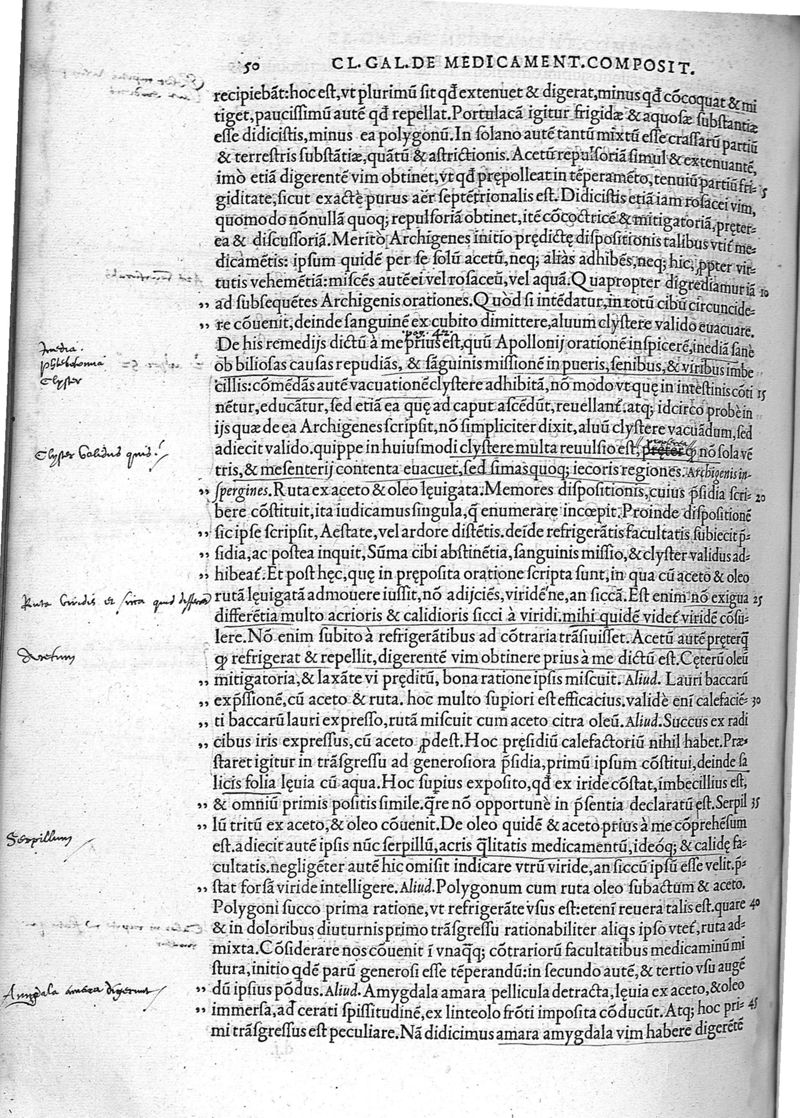 50 CL. GAL. DE MEDICAMENT. COMPOSIT.
recipiebãt: hoc est, vt plurimũ sit qđ extenuet & digerat, minus qđ cõcoquat & mi
tiget, paucissimũ autẽ qđ repellat. Portulacã igitur frigidæ & aquosæ substantiæ
esse didicistis, minus ea polygonũ. In solano autẽ tantũ mixtũ esse crassarũ partiũ
& terrestris substãtiæ, quãtũ & astrictionis. Acetũ repulsoriã simul & extenuantẽ,
imò etiã digerentẽ vim obtinet, vt qđ prępolleat in tẽperamẽto, tenuiũ partiũ fri- 5
giditate, sicut exactè purus aër septẽtrionalis est. Didicistis etiã iam rosacei vim,
quomodo nõnullã quoq; repulsoriã obtinet, itẽ cõcoctricẽ & mitigatoriã, pręter-
ea & discussoriã. Meritò Archigenes initio prędictę dispositionis talibus vtit̃ me-
dicamẽtis: ipsum quidẽ per se solũ acetũ, neq; alias adhibẽs, neq; hic, ꝓpter vir-
tutis vehemẽtiã: miscẽs autẽ ei vel rosaceũ, vel aquã. Quapropter digrediamur iã 10
„ ad subsequẽtes Archigenis orationes. Quòd si intẽdatur, in totũ cibũ circuncide-
„ re cõuenit, deinde sanguinẽ ex cubito dimittere, aluum clystere valido euacuare.
De his remedijs dictũ à me prius est, quũ Apollonij orationẽ inspicerẽ, inediã sanè
Inedia.
ob biliosas causas repudiãs, & sãguinis missionẽ in pueris, senibus, & viribus imbe
phlebotomia
cillis: cõmẽdãs autẽ vacuationẽ clystere adhibitã, nõ modo vt quę in intestinis cõti 15
Clyster
nẽtur, educãtur, sed etiã ea quę ad caput ascẽdũt, reuellant̃. atq; idcirco probè in
ijs quæ de ea Archigenes scripsit, nõ simpliciter dixit, aluũ clystere vacuãdum, sed
adiecit valido. quippe in huiusmodi clystere multa reuulsio est, pręter ꝙ nõ sola vẽ
Clyster validus quis?
tris, & mesenterij contenta euacuet, sed simasquoq; iecoris regiones. Archigenis in-
„ spergines. Ruta ex aceto & oleo lęuigata. Memores dispositionis, cuius p̃sidia scri- 20
bere cõstituit, ita iudicamus singula, q̃ enumerare incœpit. Proinde dispositionẽ
„ sic ipse scripsit, Aestate, vel ardore distẽtis. deĩde refrigerãtis facultatis subiecit p̃-
„ sidia, ac postea inquit, Sũma cibi abstinẽtia, sanguinis missio, & clyster validus ad-
„ hibeat̃. Et post hęc, quę in pręposita oratione scripta sunt, in qua cũ aceto & oleo
„ rutã lęuigatã admouere iussit, nõ adijciẽs, viridẽ ne, an siccã. Est enim nõ exigua 25
Ruta viridis et sicca quid differat
differẽtia multo acrioris & calidioris sicci à viridi. mihi quidẽ videt̃ viridẽ cõsu-
lere. Nõ enim subitò à refrigerãtibus ad cõtraria trãsiuisset. Acetũ autẽ pręterq̃
ꝙ refrigerat & repellit, digerentẽ vim obtinere prius à me dictũ est. Cęterũ oleũ
Acetum
„ mitigatoria, & laxãte vi pręditũ, bona ratione ipsis miscuit. Aliud. Lauri baccarũ
„ exp̃ssionẽ, cũ aceto & ruta. hoc multo supiori est efficacius. validè enĩ calefaciẽ- 30
„ ti baccarũ lauri expresso, rutã miscuit cum aceto citra oleũ. Aliud. Succus ex radi
„ cibus iris expressus, cũ aceto ꝓdest. Hoc pręsidiũ calefactoriũ nihil habet. Præ-
staret igitur in trãsgressu ad generosiora p̃sidia, primũ ipsum cõstitui, deinde sa
„ licis folia lęuia cũ aqua. Hoc supius exposito, qđ ex iride cõstat, imbecillius est,
„ & omniũ primis positis simile. q̃re nõ opportunè in p̃sentia declaratũ est. Serpil 35
„ lũ tritũ ex aceto, & oleo cõuenit. De oleo quidẽ & aceto prius à me cõprehẽsum
Serpillum
est. adiecit autẽ ipsis nũc serpillũ, acris q̃litatis medicamentũ, ideóq; & calidę fa-
cultatis. negligẽter autẽ hic omisit indicare vtrũ viride, an siccũ ipsũ esse velit. p̃-
„ stat forsã viride intelligere. Aliud. Polygonum cum ruta oleo subactum & aceto.
Polygoni succo prima ratione, vt refrigerãte vsus est: etenĩ reuera talis est. quare 40
& in doloribus diuturnis primo trãsgressu rationabiliter aliq̃s ipso vtet̃, ruta ad-
mixta. Cõsiderare nos cõuenit ĩ vnaq̃q; cõtrariorũ facultatibus medicaminũ mi
stura, initio qdẽ parũ generosi esse tẽperandũ: in secundo autẽ, & tertio vsu augẽ
„ dũ ipsius põdus. Aliud. Amygdala amara pellicula detracta, lęuia ex aceto, & oleo
Amygdala amara digerunt
„ immersa, ad cerati spissitudinẽ, ex linteolo frõti imposita cõducũt. Atq; hoc pri- 45
mi trãsgressus est peculiare. Nã didicimus amara amygdala vim habere digerẽtẽ